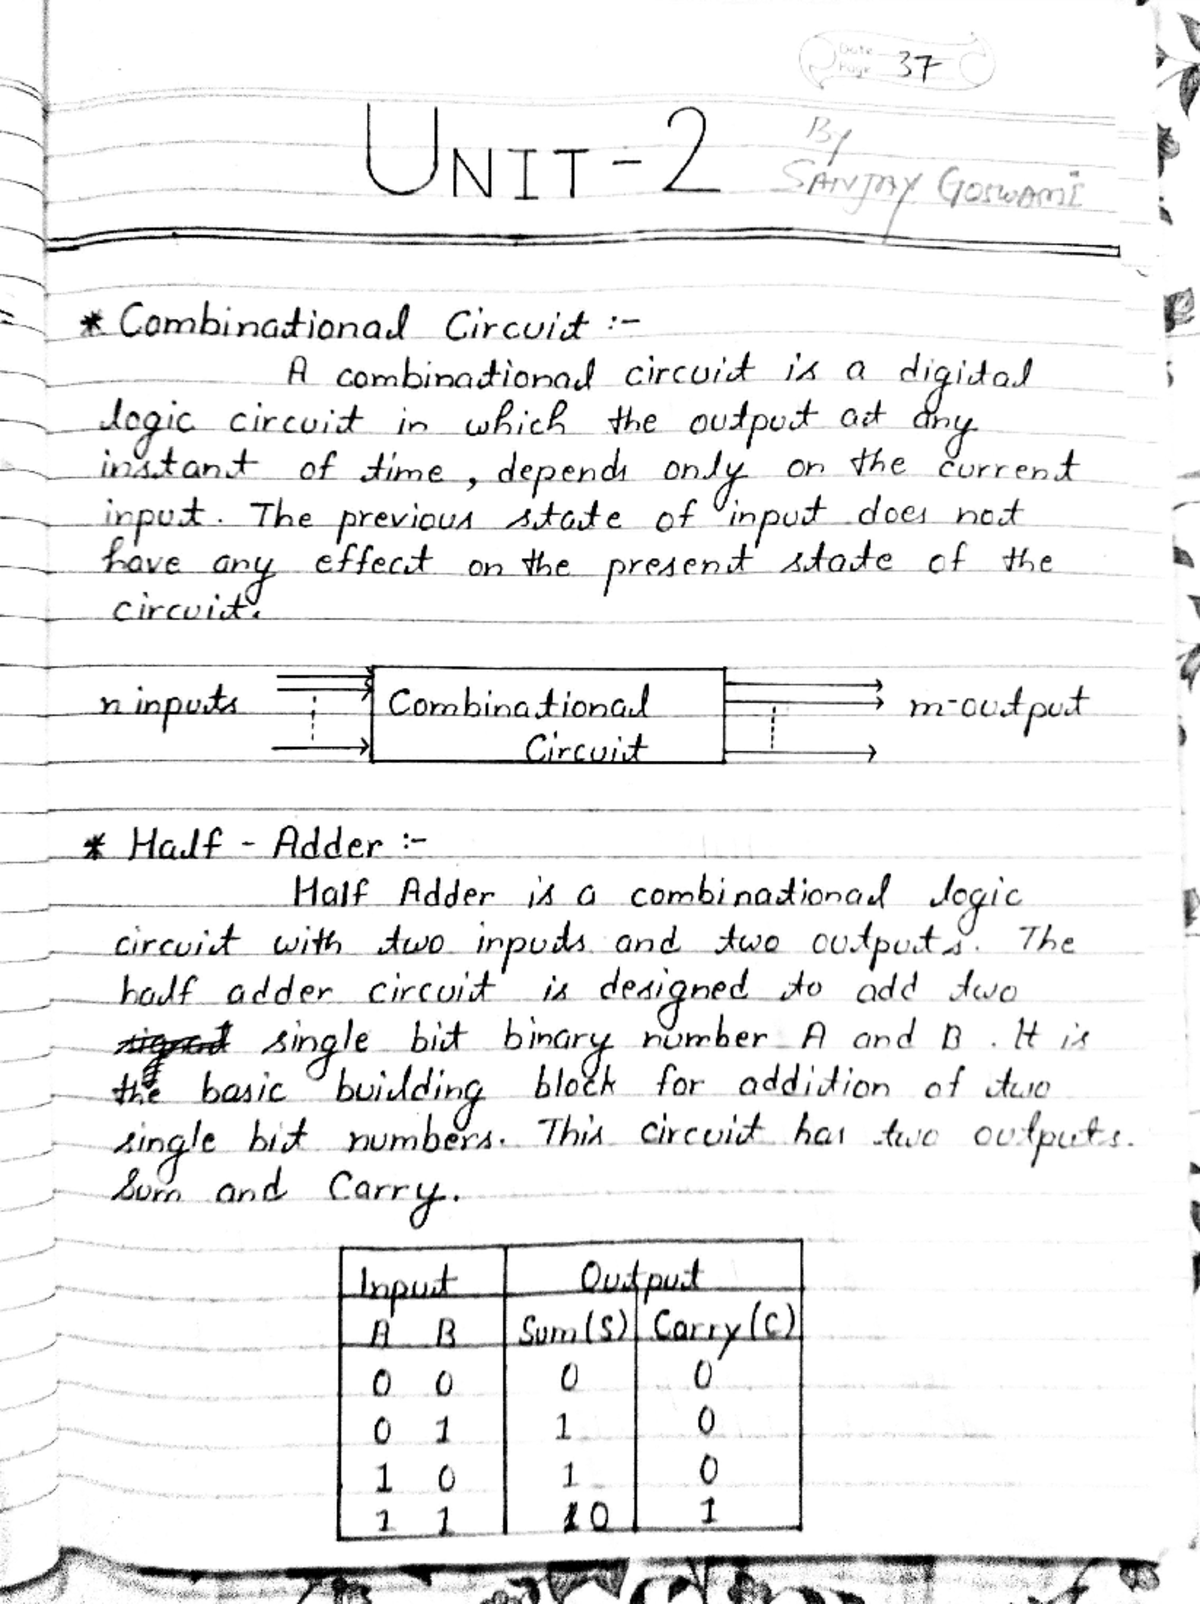 Date
Page 37
UNIT-2
By
SANJAY GOSWAMI
* Combinational Circuit :-
A combinational circuit is a digital
logic circuit in which the output at any
instant of time, depends only on the current
input. The previous state of input does not
have any effect on the present state of the
circuit.
n inputs
Combinational
Circuit
m-output
* Half - Adder :-
Half Adder is a combinational logic
circuit with two inputs and two outputs. The
half adder circuit is designed to add two
single bit binary number A and B. It is
the basic building block for addition of two
single bit numbers. This circuit has two outputs.
Sum and Carry.
Input Output
A B Sum(S) Carry(C)
0 0 0 0
0 1 1 0
1 0 1 0
1 1 0 1